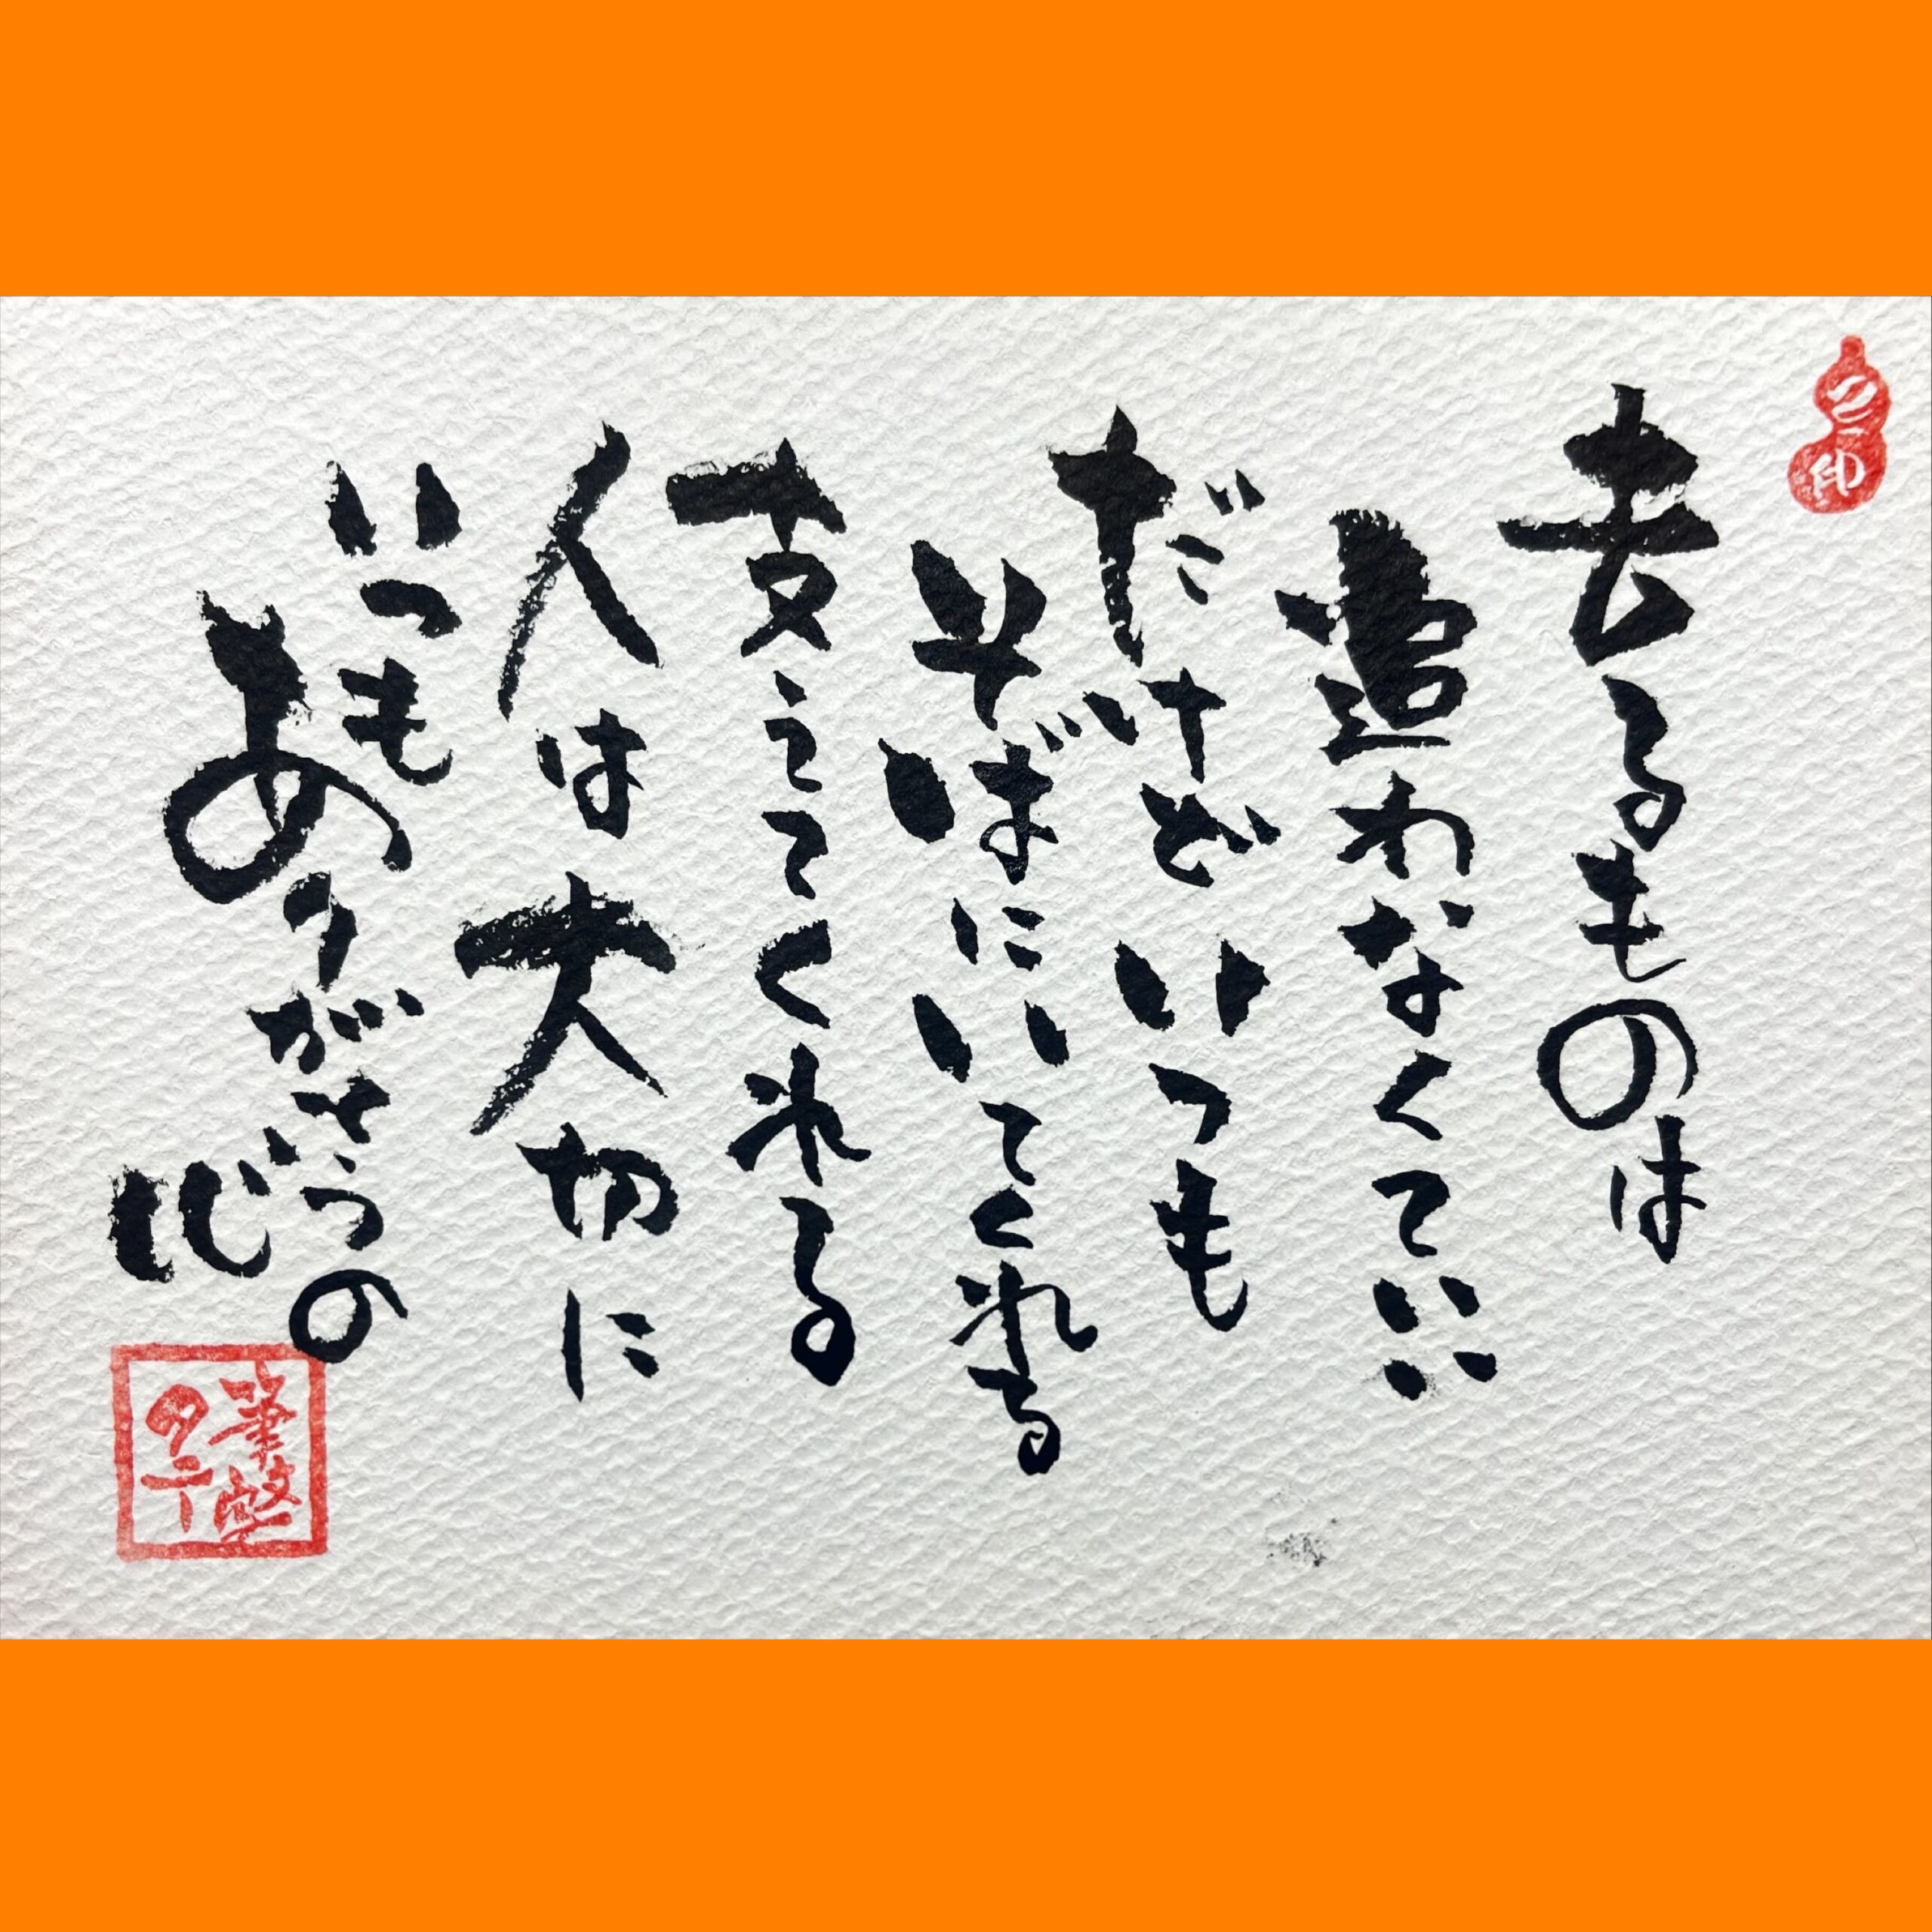 去るものは
追わなくていい
だけどいつも
そばにいてくれる
支えてくれる
人は大切に
いつも
ありがとうの
心